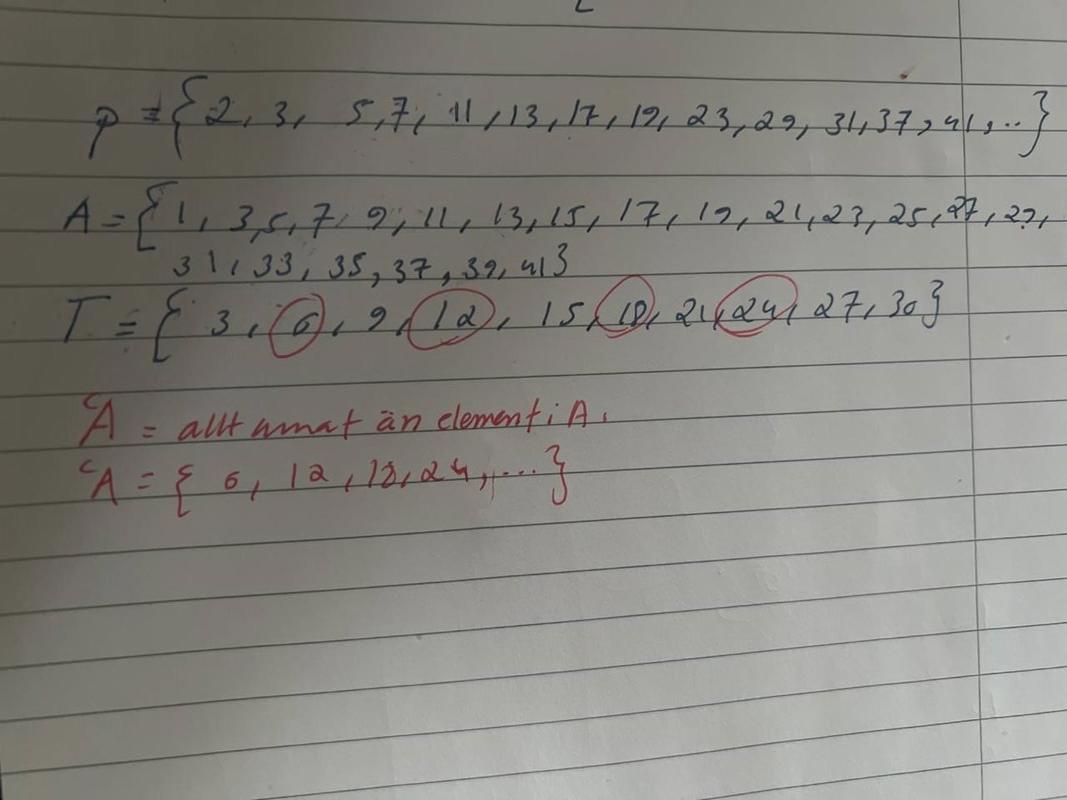 P = {2, 3, 5, 7, 11, 13, 17, 19, 23, 29, 31, 37, 41, ..}
A = {1, 3, 5, 7, 9, 11, 13, 15, 17, 19, 21, 23, 25, 27, 29,
31, 33, 35, 37, 39, 41}
T = {3, 6, 9, 12, 15, 18, 21, 24, 27, 30}
ᶜA = allt annat än element i A.
ᶜA = {6, 12, 18, 24, ...}